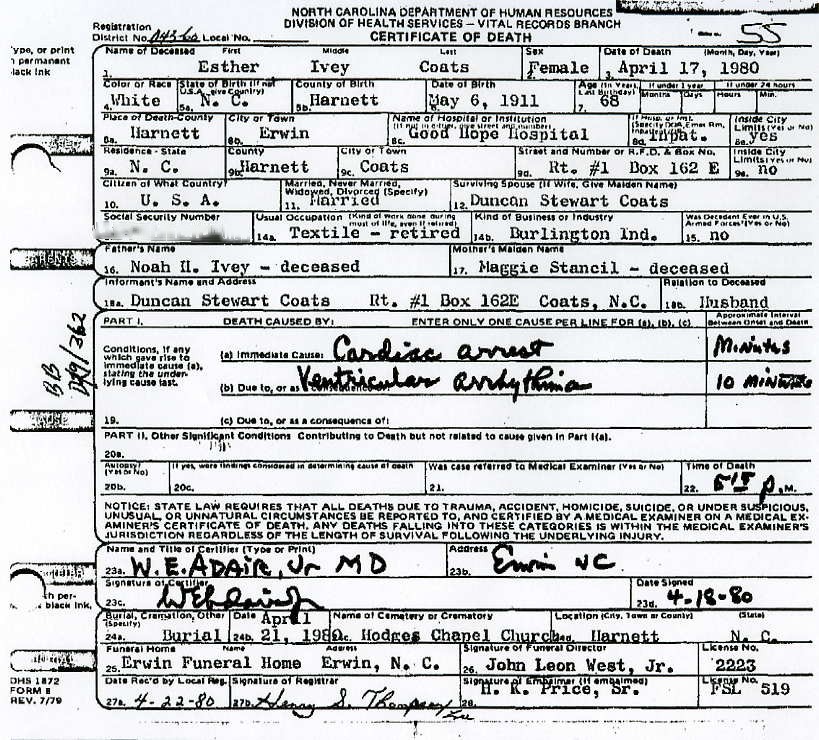 NORTH CAROLINA DEPARTMENT OF HUMAN RESOURCES
DIVISION OF HEALTH SERVICES – VITAL RECORDS BRANCH
CERTIFICATE OF DEATH
Registration
District No. Local No. 55
Type, or print
permanent
black ink
Name of Deceased First Middle Last Sex Date of Death (Month, Day, Year)
1. Esther Ivey Coats 2. Female 3. April 17, 1980
Color or Race State of Birth (If not U.S.A. give Country) County of Birth Date of Birth Age (In Years, Last Birthday) If under 1 year If under 24 hours
Months Days Hours Min.
4. White 5a. N. C. 5b. Harnett 6. May 6, 1911 7. 68
Place of Death-County City or Town Name of Hospital or Institution (If not in either, give street and number) If Hosp. or Inst. (Specify DOA, Emer. Rm, Inpatient) Inside City Limits (Yes or No)
8a. Harnett 8b. Erwin 8c. Good Hope Hospital 8d. Inpat. 8e. yes
Residence - State County City or Town Street and Number or R.F.D. & Box No. Inside City Limits (Yes or No)
9a. N. C. 9b. Harnett 9c. Coats 9d. Rt. #1 Box 162 E 9e. no
Citizen of What Country? Married, Never Married, Widowed, Divorced (Specify) Surviving Spouse (If Wife, Give Maiden Name)
10. U. S. A. 11. Married 12. Duncan Stewart Coats
Social Security Number Usual Occupation (Kind of work done during most of life, even if retired) Kind of Business or Industry Was Decedent Ever in U.S. Armed Forces? (Yes or No)
14a. Textile - retired 14b. Burlington Ind. 15. no
Father's Name Mother's Maiden Name
16. Noah H. Ivey - deceased 17. Maggie Stancil - deceased
Informant's Name and Address Relation to Deceased
18a. Duncan Stewart Coats Rt. #1 Box 162E Coats, N.C. 18b. Husband
PART I. DEATH CAUSED BY: ENTER ONLY ONE CAUSE PER LINE FOR (a), (b), (c). Approximate Interval Between Onset and Death
Conditions, if any which gave rise to immediate cause (a), stating the underlying cause last.
(a) Immediate Cause: Cardiac arrest Minutes
(b) Due to, or as a consequence of: Ventricular arrhythmia 10 minutes
19. (c) Due to, or as a consequence of:
PART II. Other Significant Conditions Contributing to Death but not related to cause given in Part I(a).
20a.
Autopsy? (Yes or No) If yes, were findings considered in determining cause of death Was case referred to Medical Examiner (Yes or No) Time of Death
20b. 20c. 21. 22. 5:15 P.M.
NOTICE: STATE LAW REQUIRES THAT ALL DEATHS DUE TO TRAUMA, ACCIDENT, HOMICIDE, SUICIDE, OR UNDER SUSPICIOUS,
UNUSUAL, OR UNNATURAL CIRCUMSTANCES BE REPORTED TO, AND CERTIFIED BY A MEDICAL EXAMINER ON A MEDICAL EX-
AMINER'S CERTIFICATE OF DEATH. ANY DEATHS FALLING INTO THESE CATEGORIES IS WITHIN THE MEDICAL EXAMINER'S
JURISDICTION REGARDLESS OF THE LENGTH OF SURVIVAL FOLLOWING THE UNDERLYING INJURY.
Name and Title of Certifier (Type or Print) Address
23a. W. E. ADAIR, Jr MD 23b. Erwin NC
Signature of Certifier Date Signed
23c. WE Adair Jr 23d. 4-18-80
black ink.
Burial, Cremation, Other (Specify) Date Name of Cemetery or Crematory Location (City, Town or County) (State)
24a. Burial 24b. April 21, 1980 Hodges Chapel Church Harnett N. C.
Funeral Home Name Address Signature of Funeral Director License No.
25. Erwin Funeral Home Erwin, N. C. 26. John Leon West, Jr. 2223
Date Rec'd by Local Reg. Signature of Registrar Signature of Embalmer (If embalmed) License No.
27a. 4-22-80 27b. Henry S. Thompson 28. H. R. Price, Sr. FSL 519
DHS 1872
FORM 8
REV. 7/79